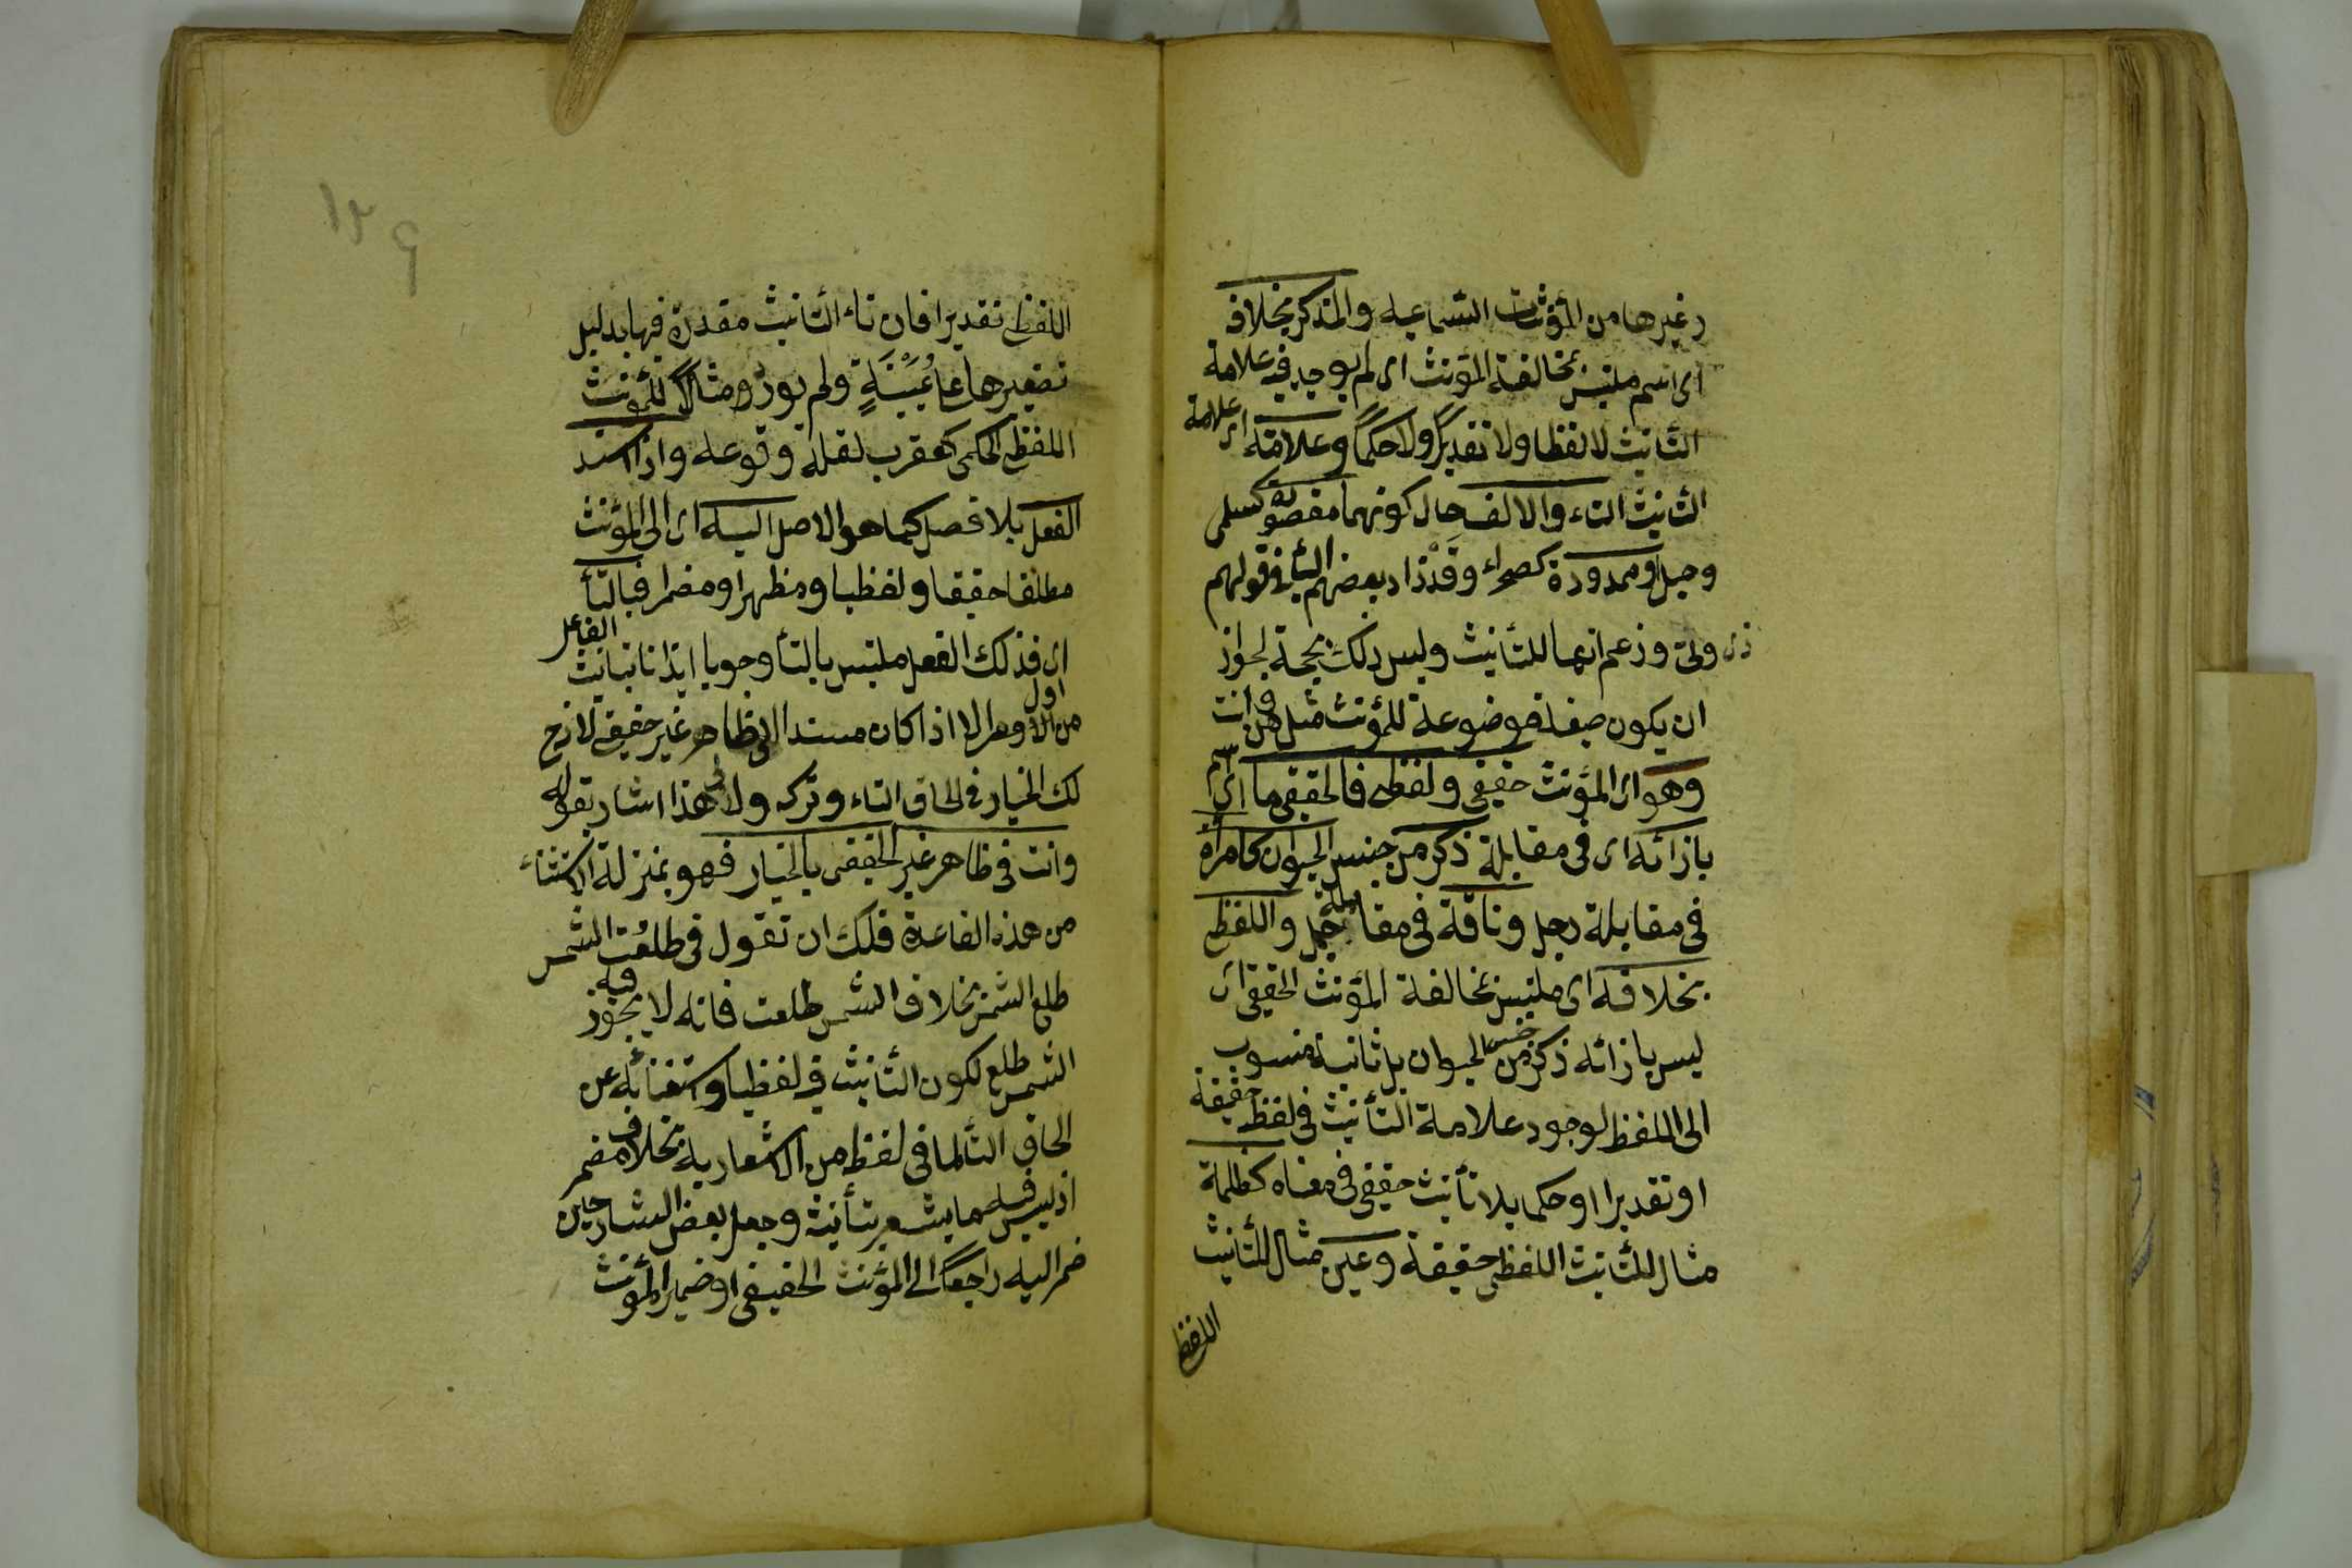 وغيرها من المؤنثات السماعيه والمذكر بخلافه
اى اسم ملتبس بمخالفة المؤنث اى لم يوجد فيه علامة
التانيث لا لفظا ولا تقديرًا ولا حكمًا وعلامته اى علامة
التانيث التاء والالف حال كونهما مقصورة كسلمى
وحبلى او ممدودة كصحراء وقد زاد بعضهم الياء فى قولهم
ذى وتى وزعم انها للتأنيث وليس ذلك بحجة لجواز
ان يكون صيغة موضوعة للمؤنث مثل هى وانت
وهو اى المؤنث حقيقى ولفظى فالحقيقى ما اى اسم
بازائه اى فى مقابلة ذكر من جنس الحيوان كامرأة
فى مقابلة رجل وناقة فى مقابلة جمل واللفظى
بخلافه اى ملتبس بمخالفة المؤنث الحقيقى اى
ليس بازائه ذكر من جنس الحيوان بل تانيثه منسوب
الى اللفظ لوجود علامة التأنيث فى لفظه حقيقة
او تقديرا او حكما بلا تأنيث حقيقى فى معناه كظلمة
مثال للتأنيث اللفظى حقيقة وعين مثال للتأنيث
اللفظى
١٢٩
اللفظى تقديرا فان تاء التانيث مقدرة فيها بدليل
تصغيرها على عُيَيْنَةٍ ولم يورد مثالًا للمؤنث
اللفظى الحكمى كعقرب لقلة وقوعه واذا اسند
الفعل بلا فصل كما هو الاصل اليه اى الى المؤنث
مطلقا حقيقيا ولفظيا ومظهرا ومضمرا فبالتأ
اى فذلك الفعل ملتبس بالتأ وجوبا ايذانا بتانيث الفاعل
من اول الامر الا اذا كان مسندا الى ظاهر غير حقيقى لانه ح
لك الخيار فى الحاق التاء وتركه والى هذا اشار بقوله
وانت فى ظاهر غير الحقيقى بالخيار فهو بمنزلة الاستثناء
من هذه القاعدة فلك ان تقول فى طلعت الشمس
طلع الشمس بخلاف الشمس طلعت فانه لا يجوز فيه
الشمس طلع لكون التأنيث فى لفظيا واستغنائه عن
الحاق التأ لما فى لفظه من الاشعار به بخلاف مضمر
اذ ليس فيه ما يشعر بتأنيثه وجعل بعض الشارحين
ضمير اليه راجعًا الى المؤنث الحقيقى او ضمير المؤنث